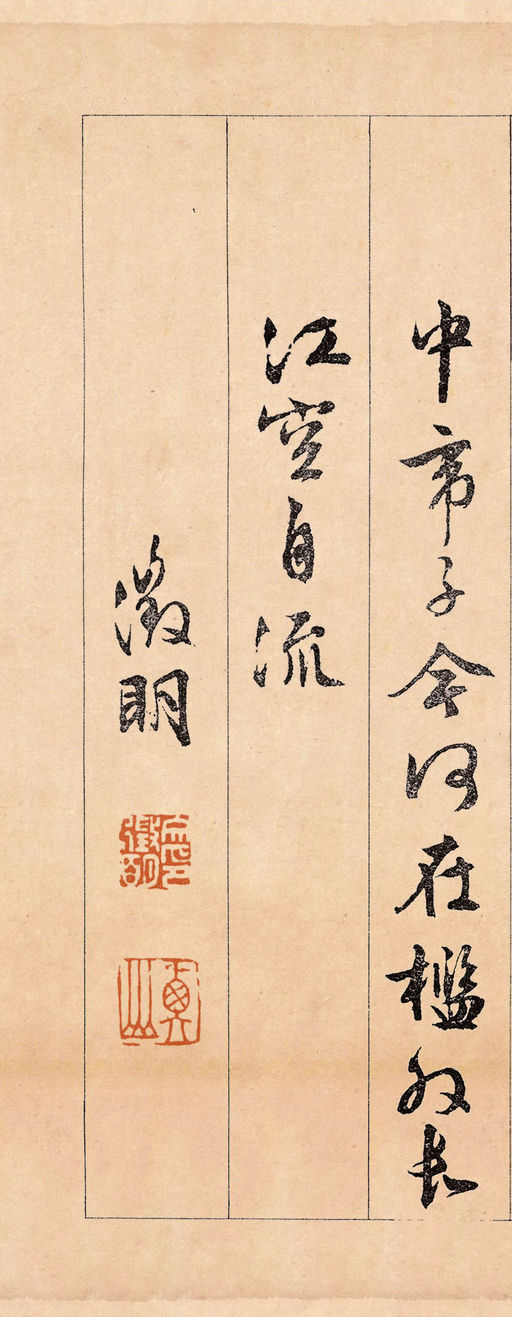 中帝子今何在檻外長
江空自流
徵明
衡山